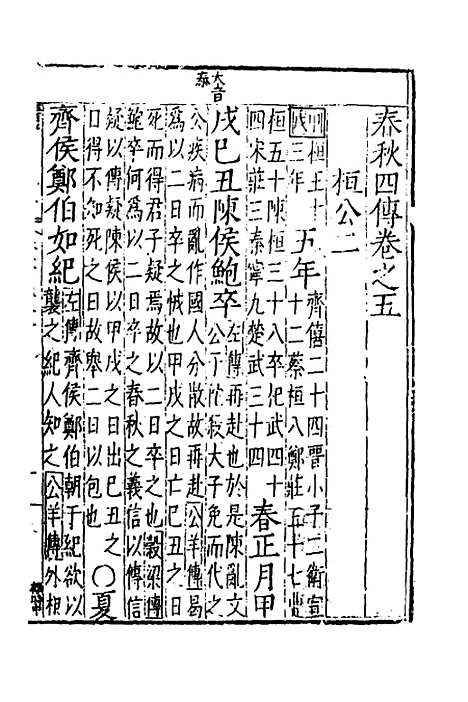 春秋四傳卷之五
桓公二
甲戌桓王十三年
五年
齊僖二十四晉小子二衛宣十二蔡桓八鄭莊三十七曹桓五十陳桓三十八卒杞武四十四宋莊三秦寧九楚武三十四
春正月甲
戌己丑陳侯鮑卒
左傳再赴也於是陳亂文公子佗殺大子免而代之公疾病而亂作國人分散故再赴
公羊傳曷爲以二日卒之怴也甲戌之日亡己丑之日死而得君子疑焉故以二日卒之也
穀梁傳鮑卒何爲以二日卒之春秋之義信以傳信疑以傳疑陳侯以甲戌之日出己丑之日得不知死之日故舉二日以包也
〇夏
齊侯鄭伯如紀
左傳齊侯鄭伯朝于紀欲以襲之紀人知之
公羊傳外相
大音泰